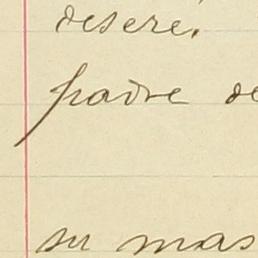 deseré.
padre de
su mas